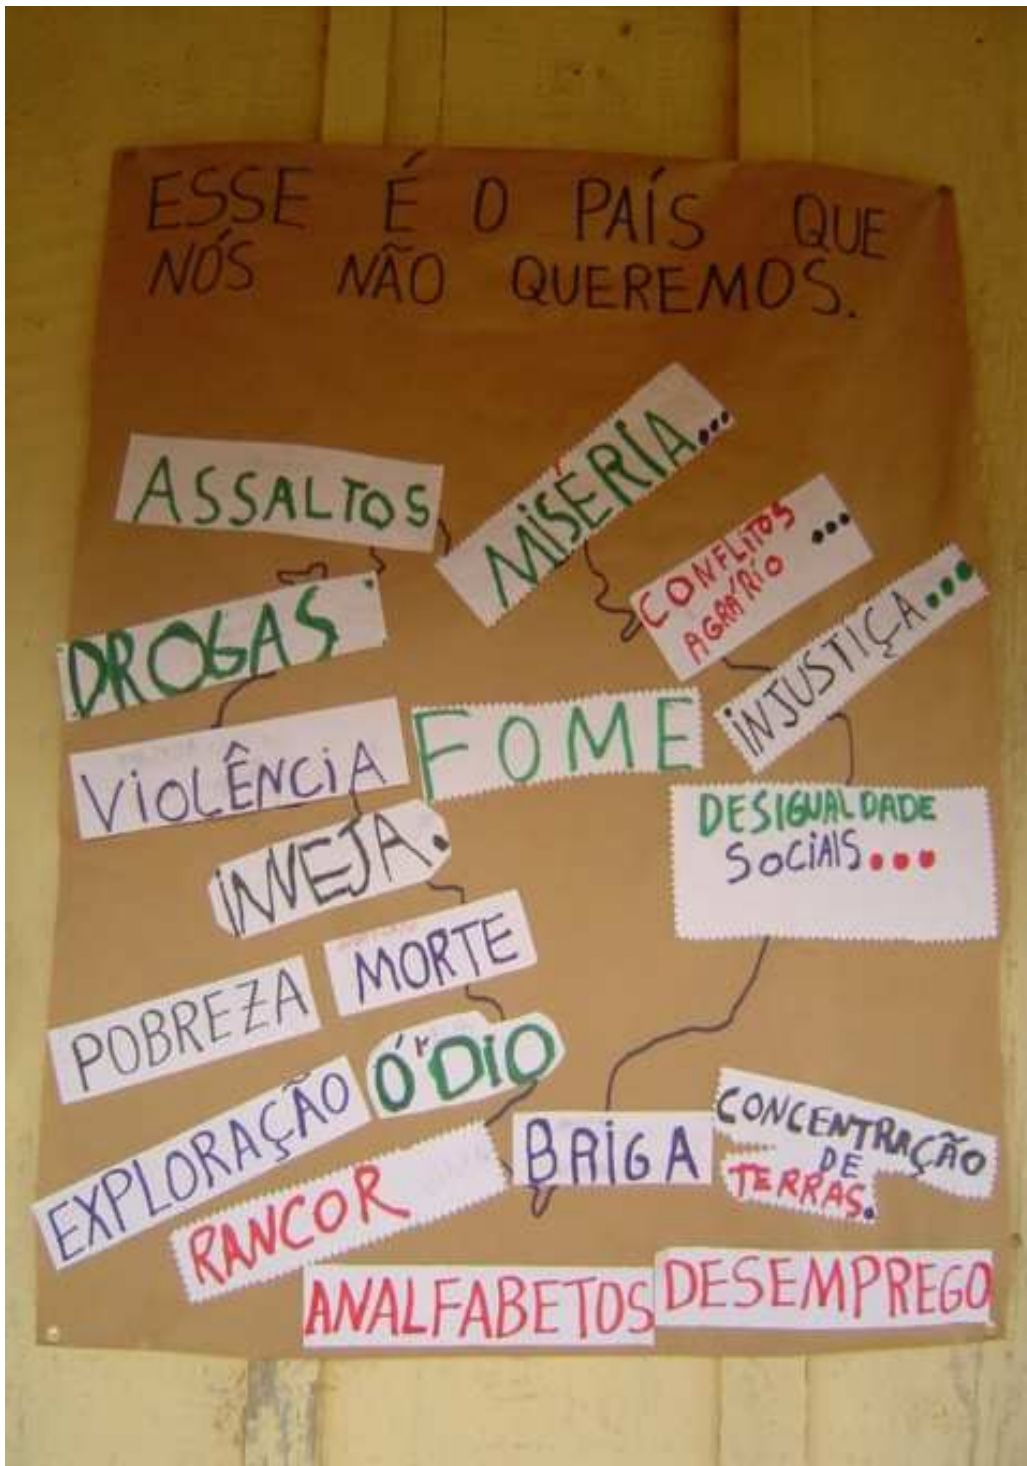 ESSE É O PAÍS QUE
NÓS NÃO QUEREMOS.
MISÉRIA...
ASSALTOS
CONFLITOS ...
AGRÁRIO
INJUSTIÇA...
DROGAS
VIOLÊNCIA
FOME
DESIGUALDADE
SOCIAIS...
INVEJA.
MORTE
POBREZA
ÓDIO
EXPLORAÇÃO
BRIGA
CONCENTRAÇÃO
DE
TERRAS.
RANCOR
ANALFABETOS
DESEMPREGO